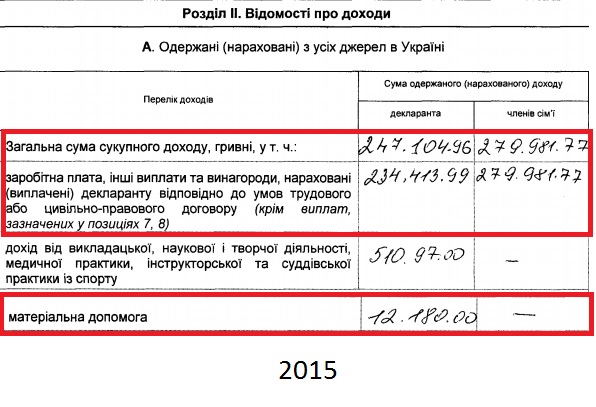 Розділ II. Відомості про доходи
А. Одержані (нараховані) з усіх джерел в Україні
Перелік доходів
Сума одержаного (нарахованого) доходу
декларанта
членів сім'ї
Загальна сума сукупного доходу, гривні, у т. ч.: 247.104.96 279.981.77
заробітна плата, інші виплати та винагороди, нараховані 234,413.99 279.981.77
(виплачені) декларанту відповідно до умов трудового
або цивільно-правового договору (крім виплат,
зазначених у позиціях 7, 8)
дохід від викладацької, наукової і творчої діяльності, 510.97.00 —
медичної практики, інструкторської та суддівської
практики із спорту
матеріальна допомога 12.180.00 —
2015